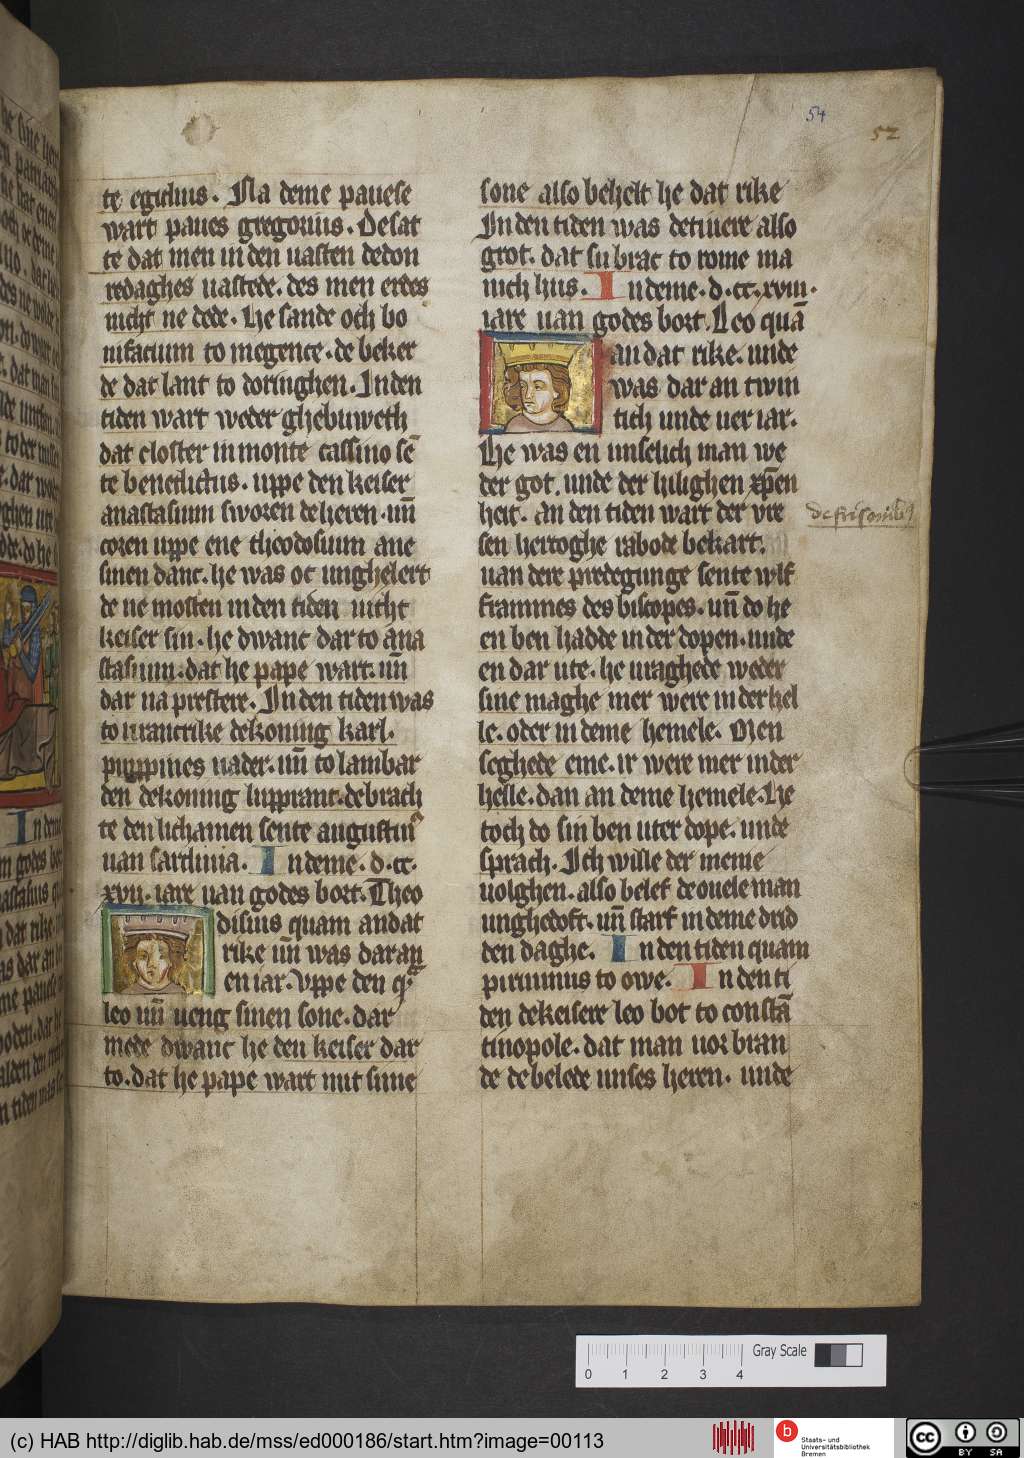 54
52
te egidius. Na deme pauese
wart paues gregorius. De sat
te dat men in den uasten dedon
redaghes uastede. des men erdes
nicht ne dede. He sande och bo
nifacium to megence. de beker
de dat lant to doringhen. In den
tiden wart weder ghebuweth
dat closter in monte cassino sē
te benedictus. uppe den keiser
anastasium sworen de heren. un̄
coren uppe ene theodosium ane
sinen danc. he was oc unghelert
de ne mosten in den tiden nicht
keiser sin. he dwanc dar to ana
stasium. dat he pape wart. un̄
dar na prestere. In den tiden was
to urancrike de koning karl.
pippines uader. un̄ to lambar
den de koning lupprant. de brach
te den lichamen sente augustin'
uan sardinia. In deme. d. cc.
xvii. iare uan godes bort. Theo
disius quam an dat
rike un̄ was dar an
en iar. Uppe den q
leo un̄ ueng sinen sone. dar
mede dwanc he den keiser dar
to. dat he pape wart mit sine
sone also behelt he dat rike
In den tiden was de tiuere also
grot. dat su brac to rome ma
nich hus. In deme. d. cc. xviii.
iare uan godes bort. Leo quā
an dat rike. unde
was dar an twin
tich unde uer iar.
He was en unselich man we
der got. unde der hilighen xp̄en
heit. An den tiden wart der vre
sen hertoghe rabode bekart.
uan dere predegunge sente wlf
frammes des biscopes. un̄ do he
en ben hadde in der dopen. unde
en dar ute. he uraghede weder
sine maghe mer were in der hel
le. oder in deme hemele. Men
seghede eme. ir were mer in der
helle. dan an deme hemele. He
toch do sin ben uter dope. unde
sprach. Ich wille der mene
uolghen. also belef de ouele man
unghedoft. un̄ starf in deme drid
den daghe. In den tiden quam
pirminus to owe. In den ti
den de keisere leo bot to constā
tinopole. dat man uor bran
de de belede unses heren. unde
Gray Scale
0 1 2 3 4
(c) HAB http://diglib.hab.de/mss/ed000186/start.htm?image=00113
b
Staats- und
Universitätsbibliothek
Bremen
cc
BY SA